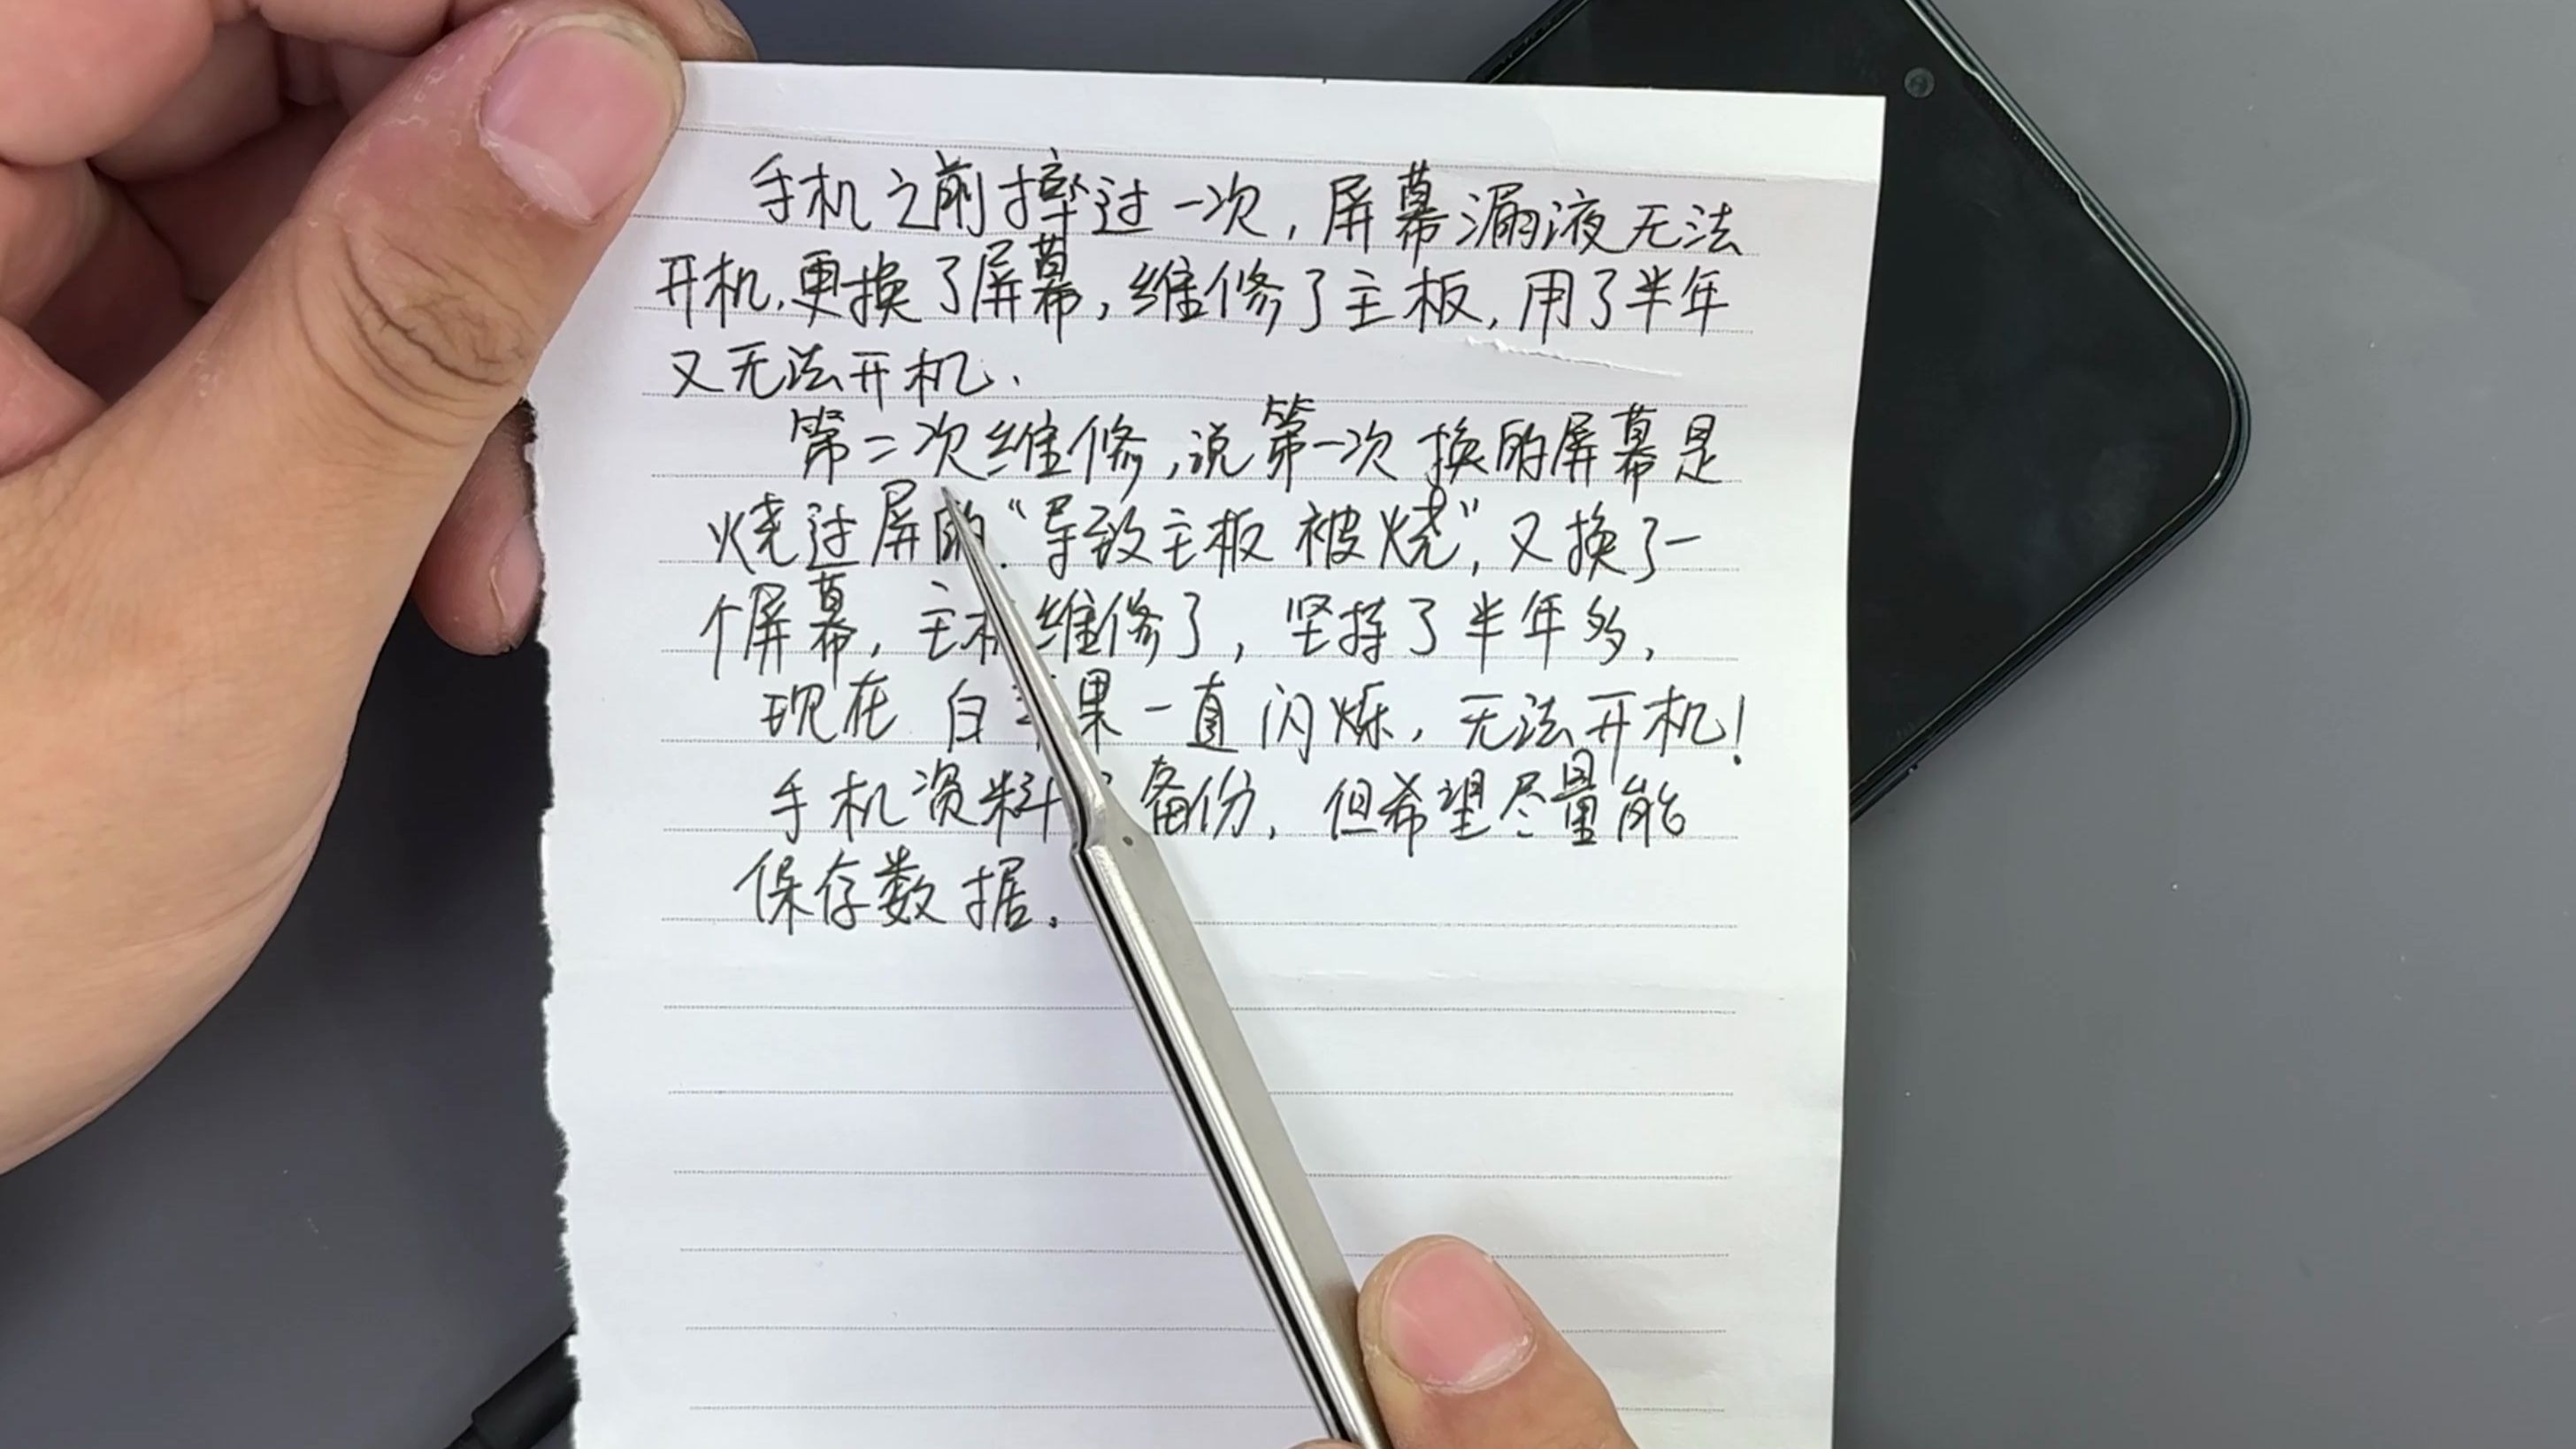 手机之前摔过一次，屏幕漏液无法
开机，更换了屏幕，维修了主板，用了半年
又无法开机．
第二次维修，说第一次换的屏幕是
烧过屏的．“导致主板被烧”，又换了一
个屏幕，主板维修了，坚持了半年多，
现在白苹果一直闪烁，无法开机！
手机资料 备份，但希望尽量能
保存数据．